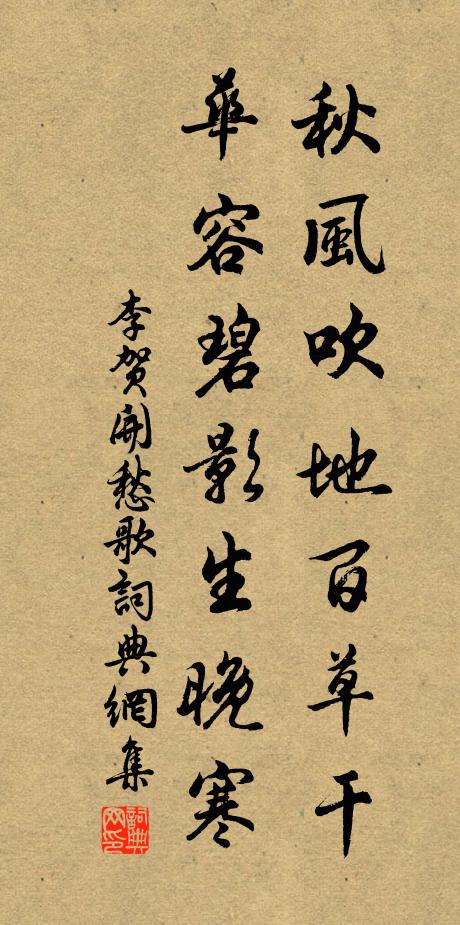 秋風吹地百草干
華容碧影生晚寒
李贺開愁歌詞典網集
詞典网印